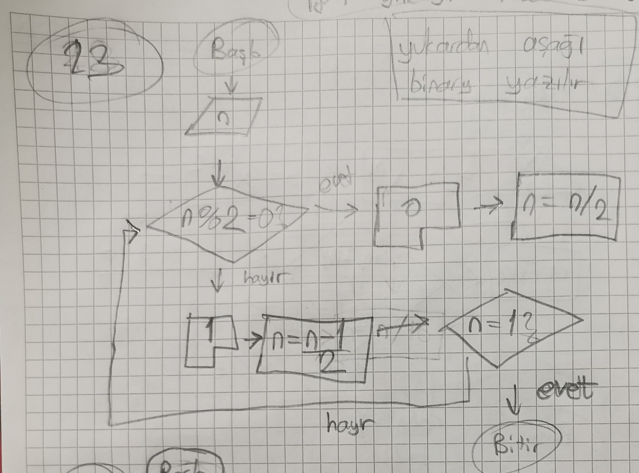 23
Başla
yukardan aşağı
binary yazılır
n
n%2=0?
evet
0
n = n/2
hayır
1
n = n-1
2
n = 1?
evet
hayır
Bitir